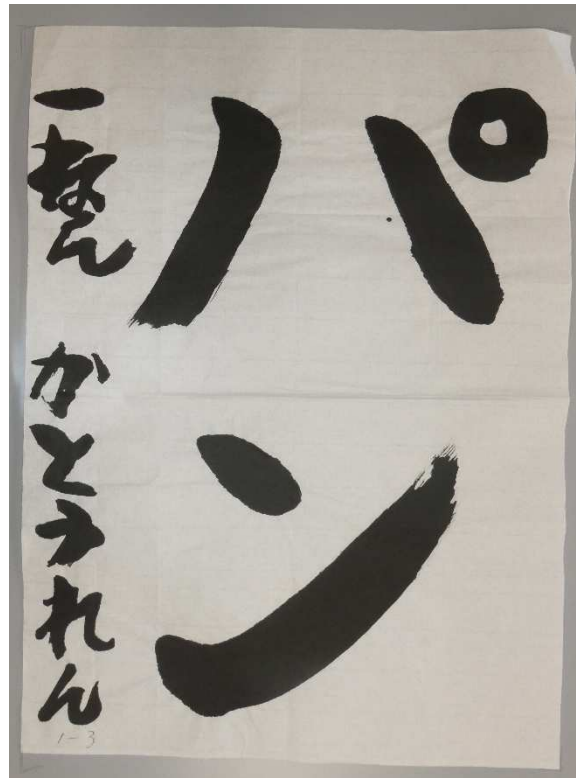 パン
一ねん かとうれん
1-3